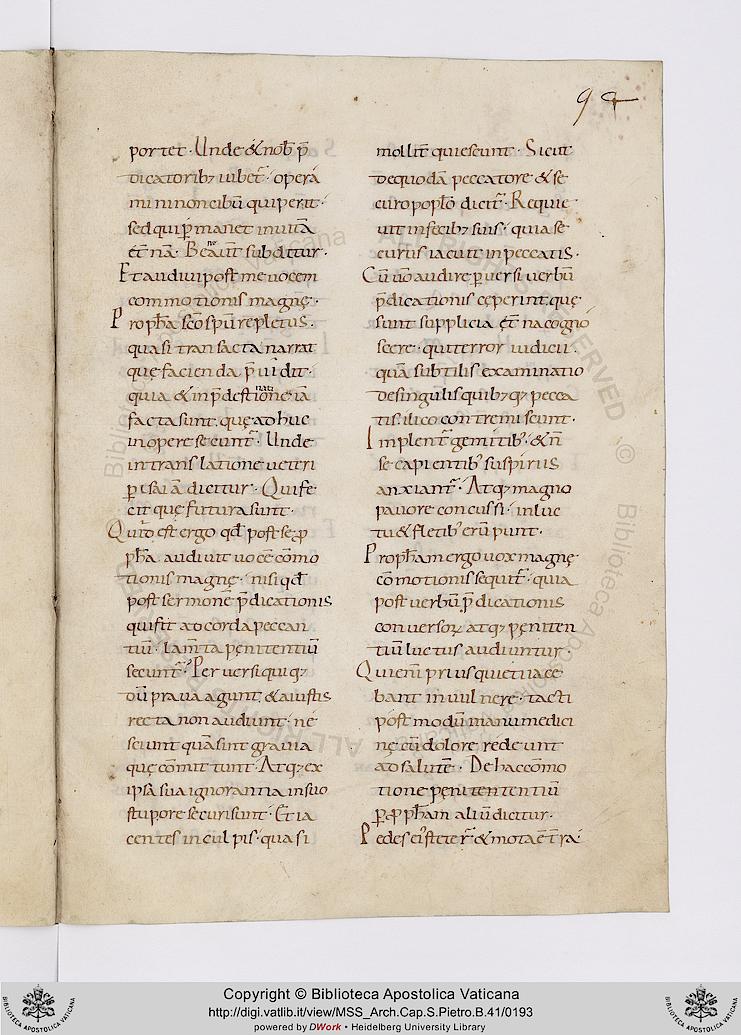 94
portet · Unde & nob̄ p̄
dicatorib; iubet̄ · operā
mini non cibū qui perit ·
sed qui p̄manet in uitā
ęt̄nā · Beda uir subditur ·
Et audiui post me uocem
commotionis magnę ·
Propha sc̄o sp̄u repletus ·
quasi transacta narrat
quę facienda p̄uidit ·
quia & in p̄destinatione iā
facta sunt · quę adhuc
in opere secunt̄ · Unde
in translatione ueteri
p̱ isaiā dicitur · Qui fe
cit quę futura sunt ·
Quid est ergo qd̄ post se p̱
ph̄a audiuit uocē cōmo
tionis magnę · nisi qd̄
post sermonē p̄dicationis
qui fit ad corda peccan
tiū · lam̄ta pęnitentiū
secunt̄ · Peruersi quiq;
dū praua agunt & a iustis
recta non audiunt · ne
sciunt quā sint grauia
quę cōmittunt · Atq; ex
ipsa sua ignorantia in suo
stupore securi sunt · Et ia
centes in culpis · quasi
mollit̄ quiescunt · Sicut
de quodā peccatore & se
curo poplo dicit̄ · Requie
uit in fecib; suis · quia se
curus iacuit in peccatis ·
Cū uō audire peruersi uerbū
p̄dicationis ceperint · quę
sunt supplicia ęt̄na cogno
scere · qui terror iudicii ·
quā subtilis examinatio
de singulis quibusq; pecca
tis · ilico contremiscunt ·
Implent̄ gemitib; & n̄
se capientib; suspiriis
anxiant̄ · Atq; magno
pauore concussi · in luc
tu & fletib; erūpunt ·
Propham ergo uox magnę
cōmotionis sequit̄ · quia
post uerbū p̄dicationis
conuersoꝝ atq; pęniten
tiū luctus audiuntur ·
Qui enī prius quieti iace
bant in uulnere · tacti
post modū manu medici
nę cū dolore redeunt
ad salutē · De hac cōmo
tione pęnitententiū
p̱ p̱ph̄am aliū dicitur ·
Pedes ei steter̄ & mota ē t̄ra
Copyright © Biblioteca Apostolica Vaticana
http://digi.vatlib.it/view/MSS_Arch.Cap.S.Pietro.B.41/0193
powered by DWork • Heidelberg University Library
BIBLIOTECA APOSTOLICA VATICANA
BIBLIOTECA APOSTOLICA VATICANA